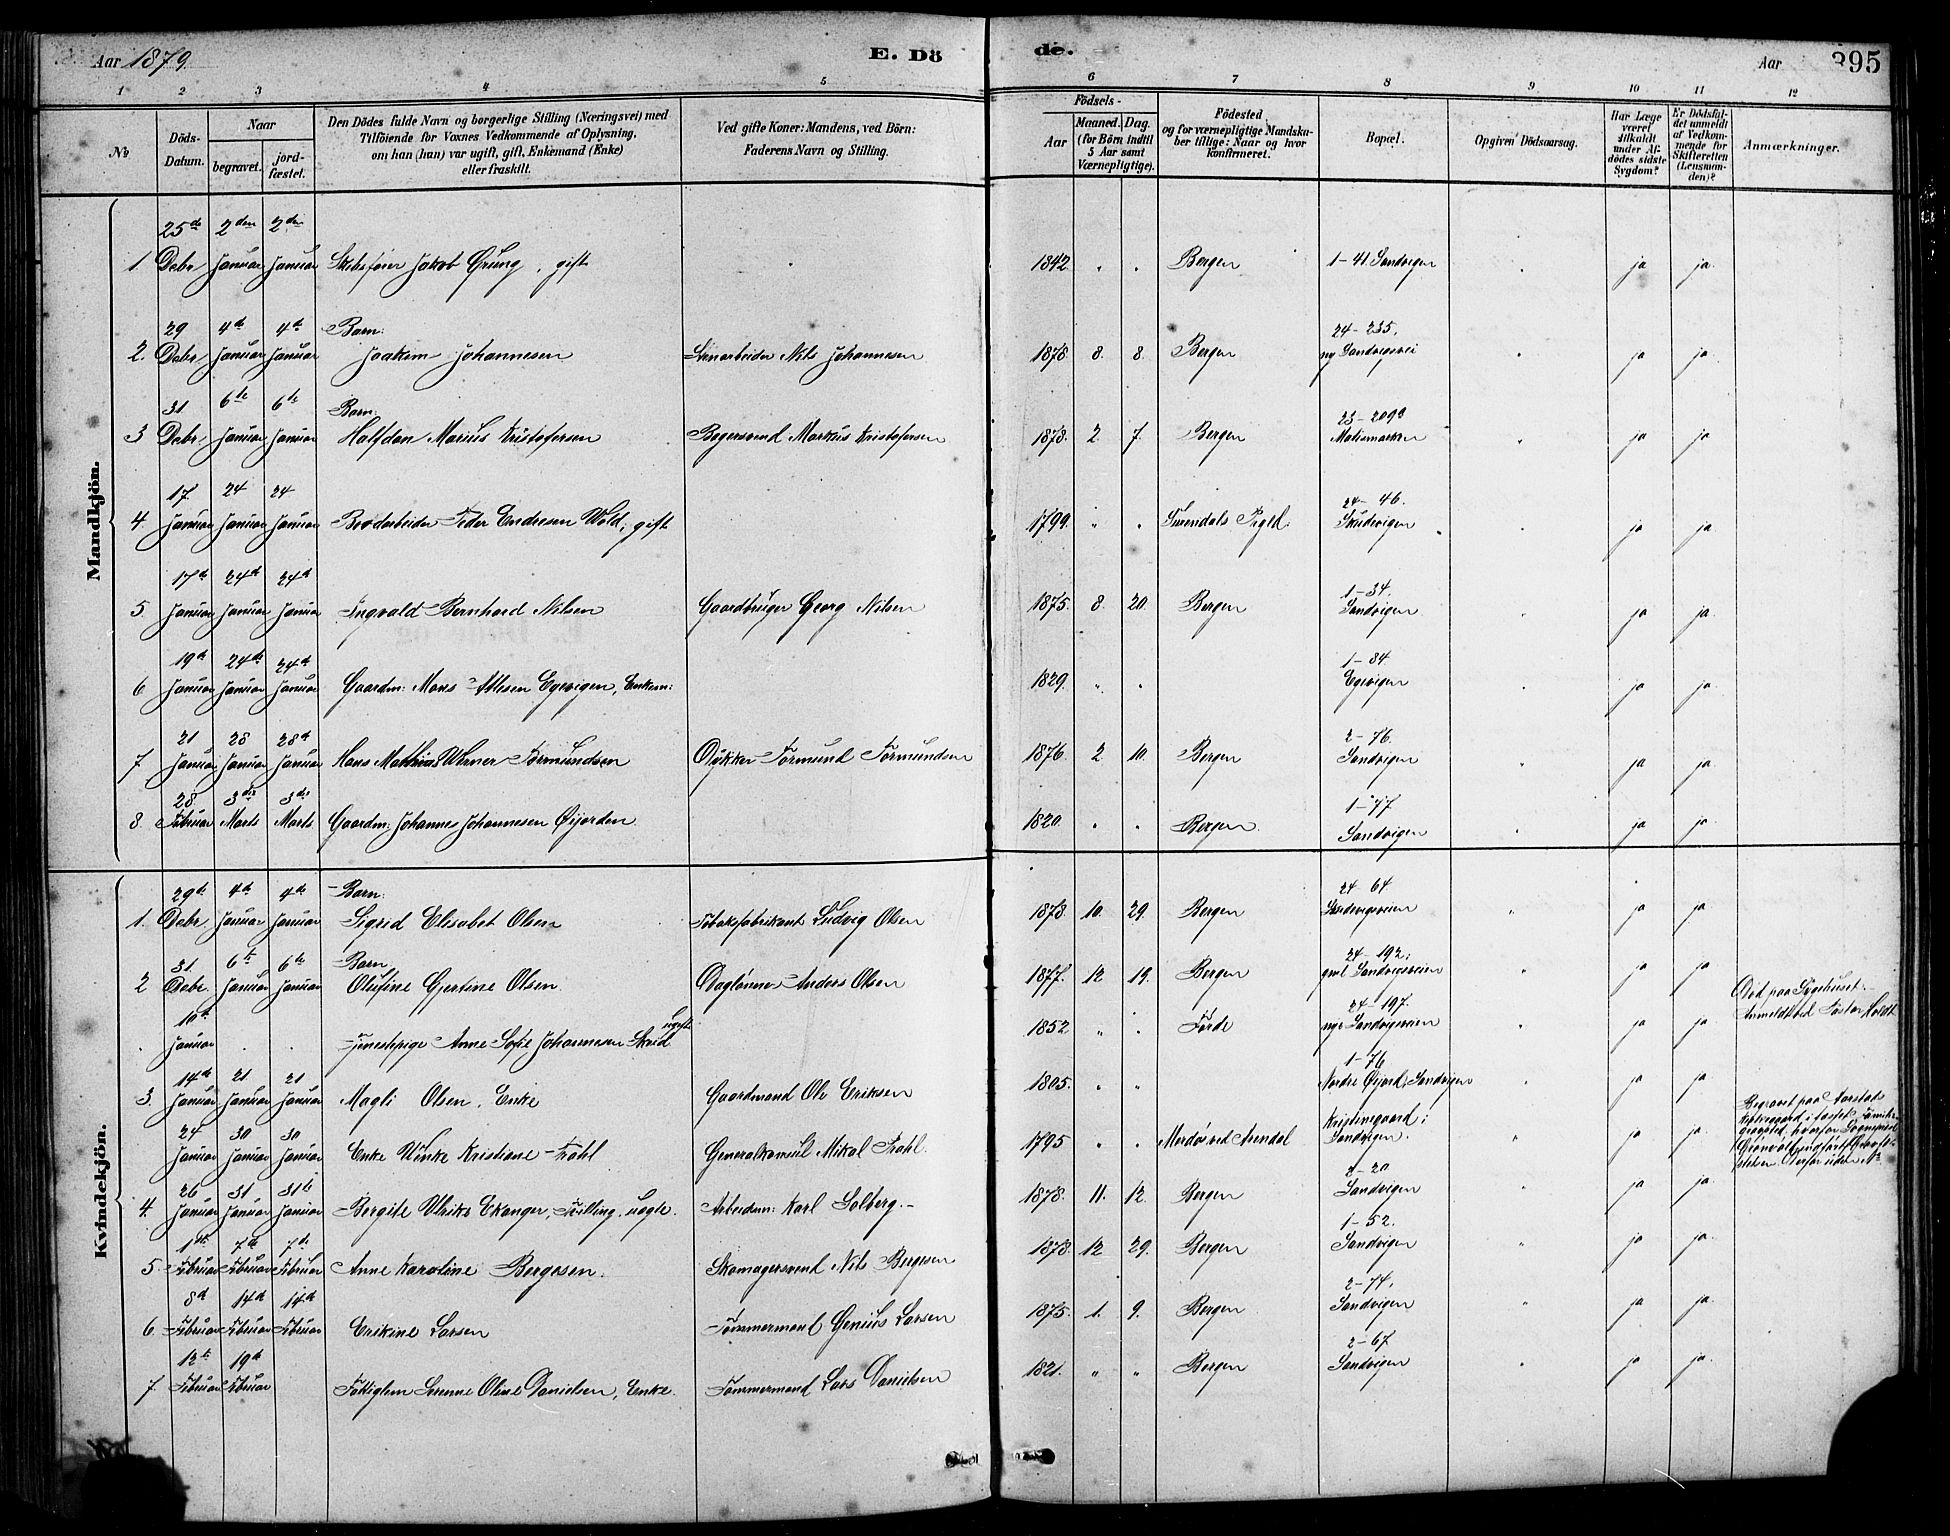 Aar 1879. E. Dö de. Aar 395
1 2 3 4 5 6 7 8 9 10 11 12
№
Döds-Datum.
Naar
begravet. jord-fæstet.
Den Dödes fulde Navn og borgerlige Stilling (Næringsvei) med
Tilföiende for Voxnes Vedkommende af Oplysning,
om han (hun) var ugift, gift, Enkemand (Enke)
eller fraskilt.
Ved gifte Koner: Mandens, ved Börn:
Faderens Navn og Stilling.
Födsels-
Aar Maaned. Dag.
(for Börn indtil
5 Aar samt
Værnepligtige).
Födested
og for værnepligtige Mandska-
ber tillige: Naar og hvor
konfirmeret.
Bopæl.
Opgiven Dödsaarsag.
Har Læge
været
tilkaldt
under Af-
dödes sidste
Sygdom?
Er Dödsfal-
det anmeldt
af Vedkom-
mende for
Skifteretten
(Lensman-
den)?
Anmærkninger.
Mandkjön.
25de 2den 2den
1. Debr Januar Januar Jakob Grung, gift 1842. " " Bergen 1-41. Sandvigen " ja ja
29 4de 4de Barn: 24-235.
2. Debr Januar Januar Joakim Johannesen Stenarbeider Nils Johannesen 1878. 8. 8. Bergen ny Sandvigsvei " ja ja
31 6te 6te Barn:
3 Debr Januar Januar Halfdan Marius Kristofersen Bagersvend Markus Kristofersen 1878. 2 7. Bergen " ja ja
17. 24 24 24-46.
4. Januar Januar Januar Peder Endresen Wold, gift 1799. " " Surendals Prgld. Skudevigen " ja ja
17de 24de 24de 1-34.
5 Januar Januar Januar Ingvald Bernhard Nilsen Gaardbruger Georg Nilsen 1875. 8. 20. Bergen Sandvigen " ja ja.
19de 24de 24de 1-84.
6 Januar Januar Januar Gaardm: Mons Atlesen Egevigen, Enkem: 1829. " " Egevigen " ja ja.
21 28 28de 2-76.
7 Januar Januar Januar Hans Mathias Werner Tormundsen Tormund Tormundsen 1876. 2 10. Bergen Sandvigen " ja ja
28. 3die 3die 1-77.
8. Februar Marts Marts Gaardm: Johannes Johannesen Øijorden 1820. " " Bergen. Sandvigen " ja ja.
Kvindekjön.
29de 4de 4de Barn. 24-64.
1. Debr. Januar Januar Sigrid Elisabet Olsen Tobaksfabrikant Ludvig Olsen 1878. 10. 29. Bergen " ja ja
31. 6te 6te Barn. 24-192.
2 Debr. Januar Januar Olufine Gjertine Olsen. Daglønner Anders Olsen 1877. 12 19. Bergen gml Sandvigsveien " ja ja
10de ugift 24-197.
. Januar . . Tjenestepige Anne Sofie Johannesen 1852 " " Førde nye Sandvigsveien ja ja Død paa Sygehuset.
14de 21 21 1-76
3. Januar Januar Januar Magli Olsen, Enke Gaardmand Ole Eriksen 1805. " " Nordre Øijord, Sandvigen " ja ja
24 30 30 Kristinegaard i
Januar Januar Januar Enke Wenke Kristiane Krohl Generalkonsul Mikal Krohl. 1795 " " Merdø ved Arendal Sandvigen. " ja ja. Begravet paa Aarstad
26 31 31te 2-20
4. Januar Januar Januar Bergite Ulrikke Ekanger, Tvilling, uægte. Arbeidsm: Karl Solberg. 1878. 11. 12. Bergen Sandvigen " ja ja.
1ste 7de 7de 1-52.
5. Februar Februar Februar Anne Karoline Bergesen. Skomagersvend Nils Bergesen 1878. 12 29. Bergen Sandvigen " ja ja.
8de 14de 14de 2-74.
6. Februar Februar Februar Erikine Larsen Tømmermand Genius Larsen 1875. 1. 9. Bergen Sandvigen " ja ja.
12te 19de 2-67
7. Februar Februar Serenne Oline Danielsen, Enke. Tømmermand Lars Danielsen 1821. " " Bergen Sandvigen " ja ja.